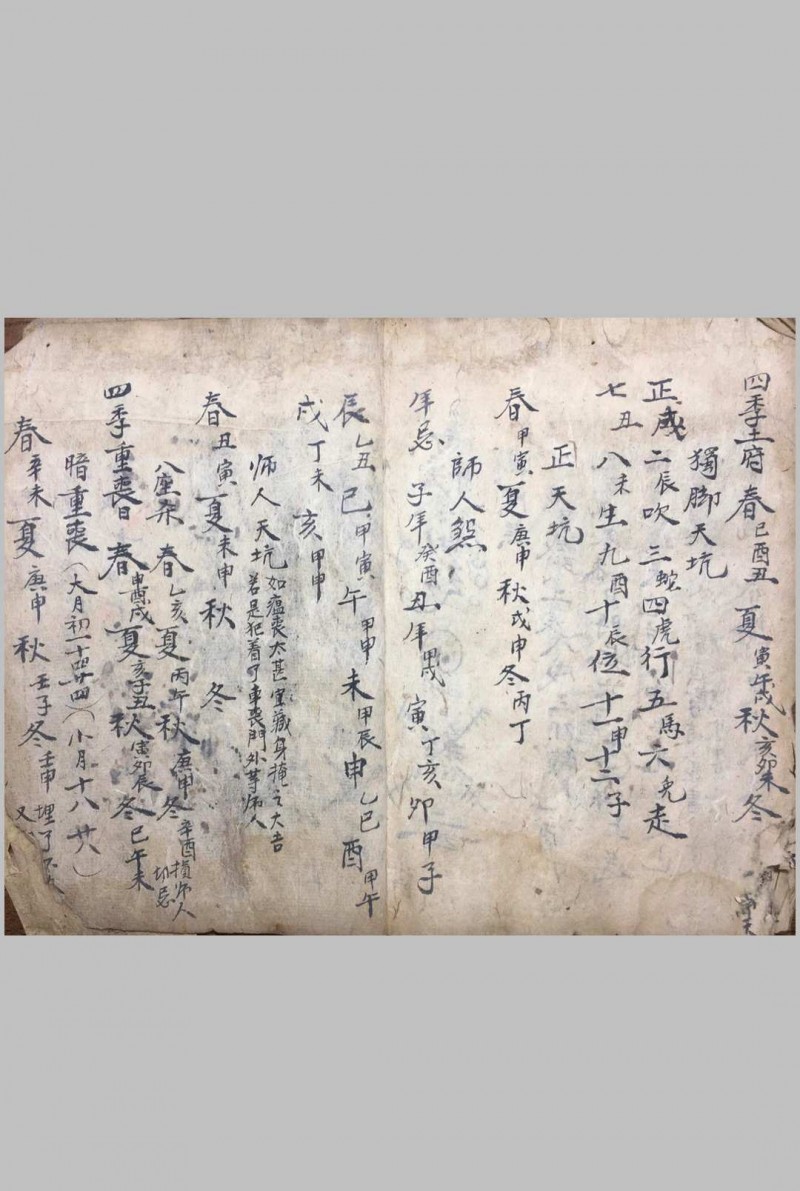 四季土府 春 巳酉丑 夏 寅午戌 秋 亥卯未 冬
獨脚天坑
正成 二辰吹 三蛇四虎行 五馬六兔走
七丑 八未生 九酉十辰位 十一申十二子
正天坑
春 甲寅 夏 庚申 秋 戊申 冬 丙丁
師人煞
年忌 子年 癸酉 丑年 甲戌 寅 丁亥 卯 甲子
辰 乙丑 巳 甲寅 午 甲申 未 甲辰 申 乙巳 酉 甲午
戌 丁未 亥 甲申
师人天坑 如瘟喪大甚宜藏身掩之大吉
若是犯着了車喪門外等师人
春 丑寅 夏 未申 秋 冬
八座 春 乙亥 夏 丙午 秋 庚申 冬 辛酉 損师人 切忌
四季重喪日 春 申酉戌 夏 亥子丑 秋 寅卯辰 冬 巳午未
暗重喪（大月初一十四廿四）（小月十八廿八）
春 辛未 夏 庚申 秋 壬子 冬 壬申 埋了 又